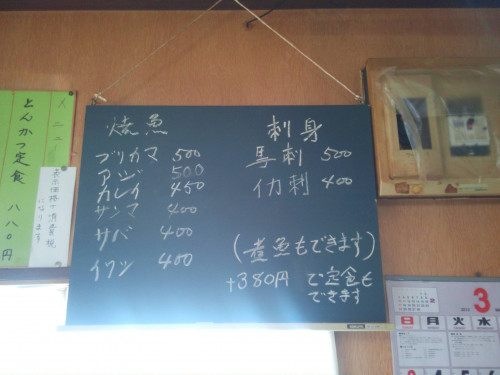 焼魚
ブリカマ 500
アジ 500
カレイ 450
サンマ 400
サバ 400
イワシ 400
刺身
馬刺 500
イカ刺 400
(煮魚もできます)
+380円 で定食も
できます
メニュー
とんかつ定食 八八〇円
表示価格+消費税
になります
3
日 月 火 水